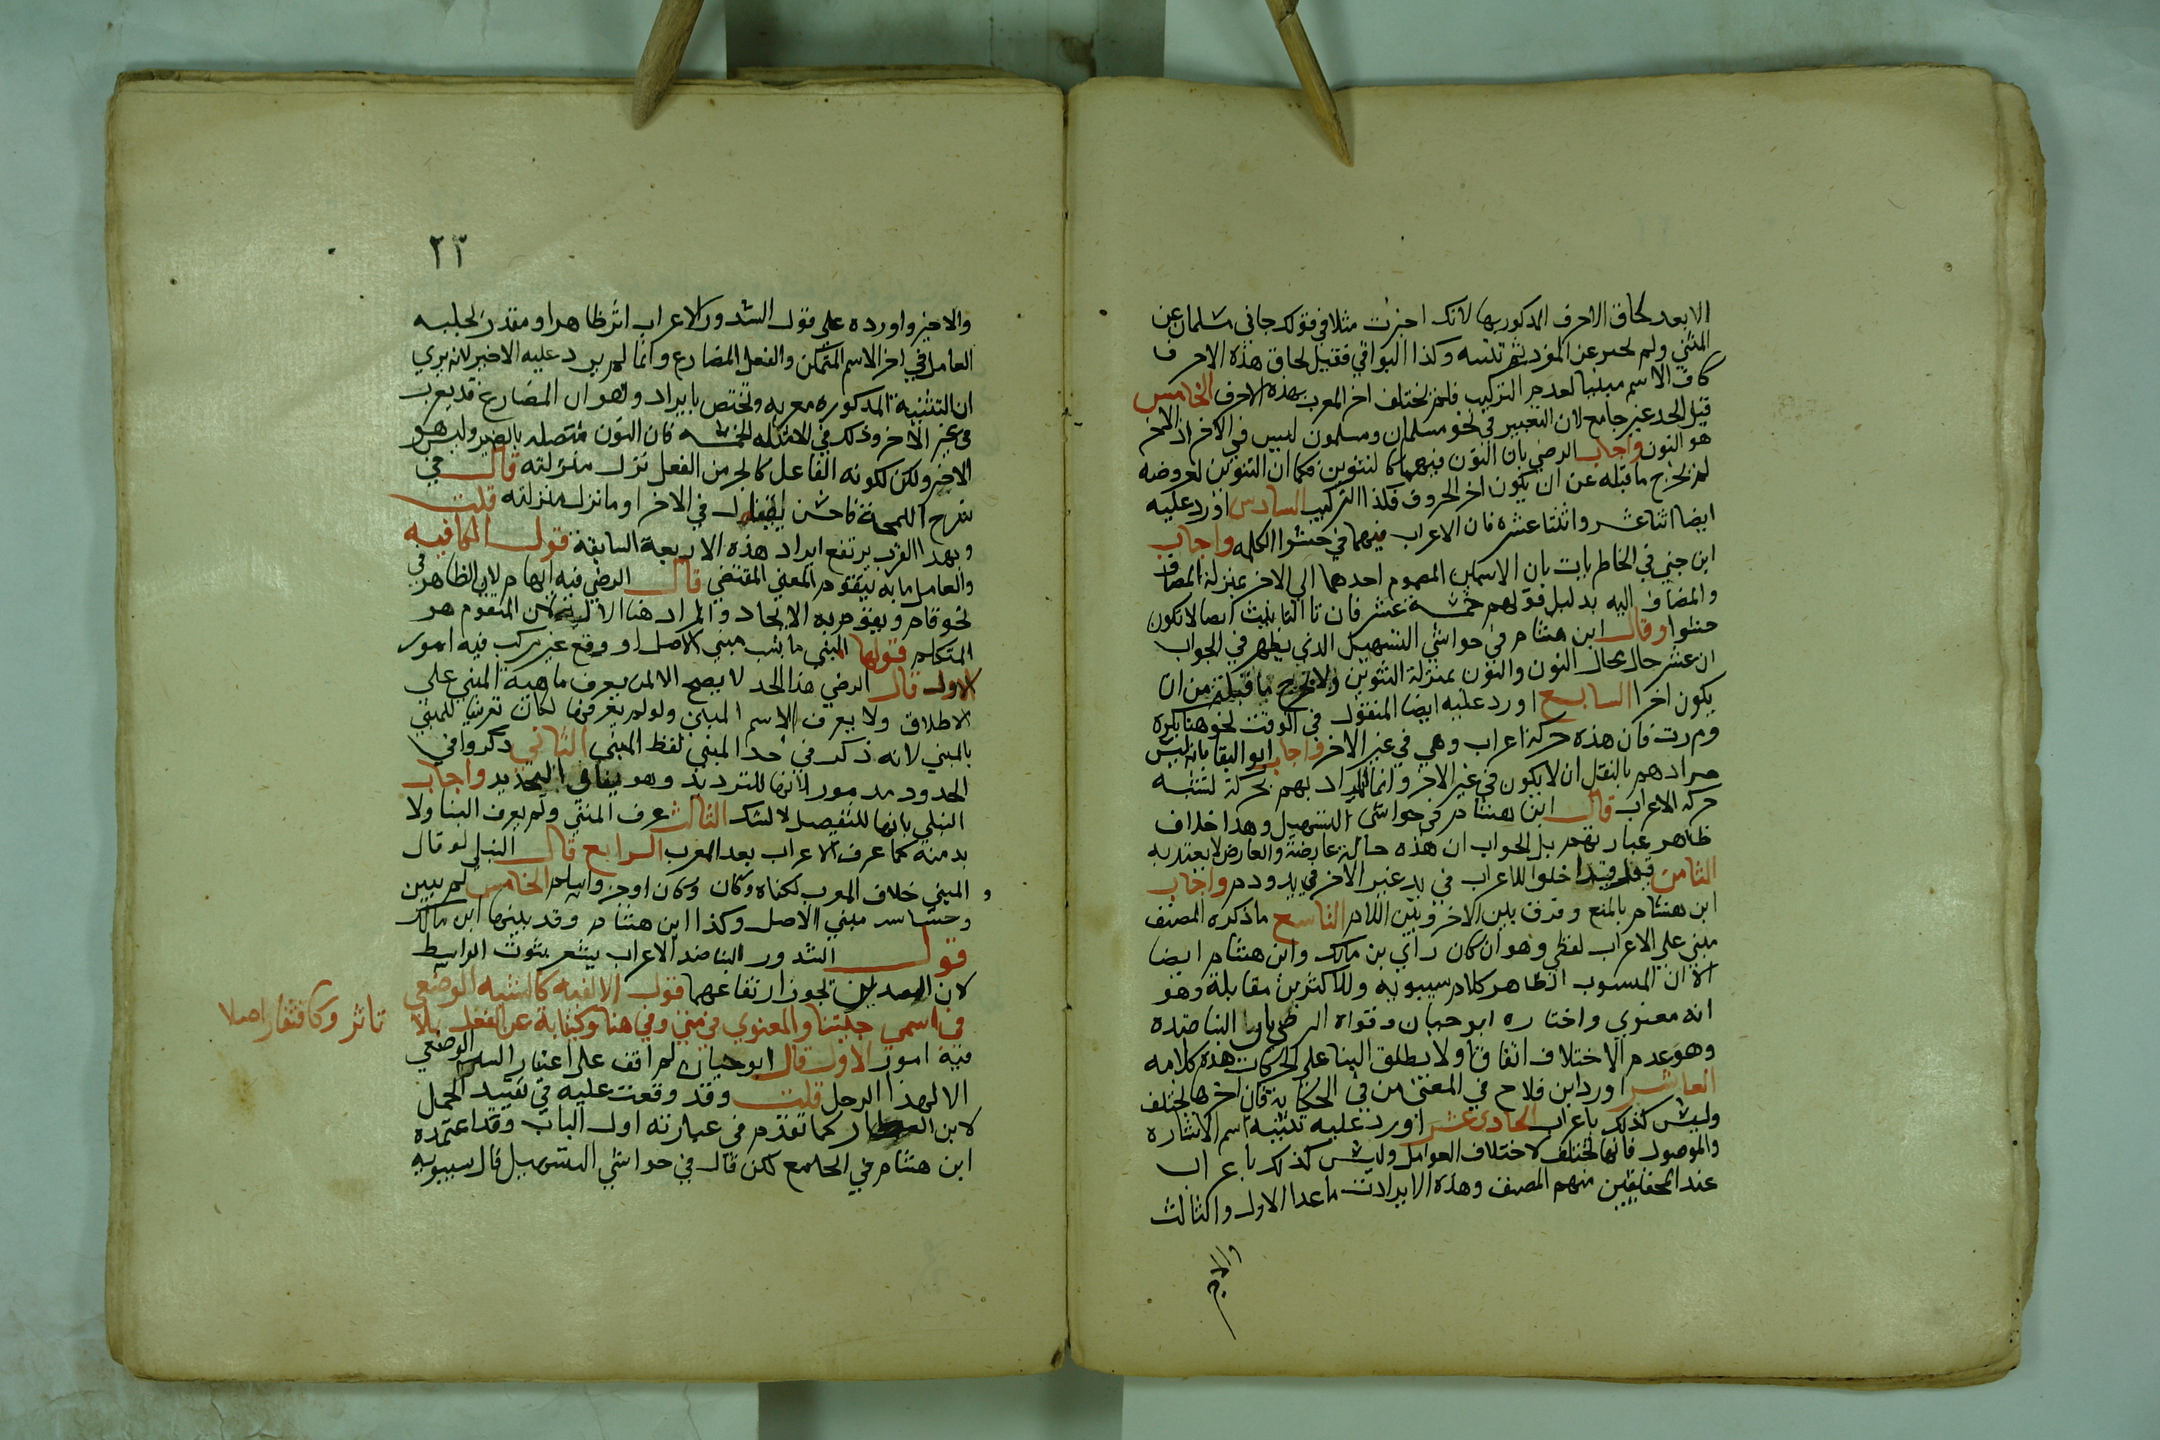 الا بعد لحاق الاحرف المذكوربها لانك اخبرت مثلا في قولك جاني مسلمان عن
المثني ولم تخبر عن المفرد ثم تثنيه وكذا البواقي فقبل لحاق هذه الاحرف
كان الاسم مبنيا لعدم التركيب فلم يختلف اخر المعرب بهذه الاحرف الخامس
قيل الحد غير جامع لان التغيير في نحو مسلمان ومسلمون ليس في الاخر اذ الاخر
هو النون واجاب الرضي بان النون فيهما كالتنوين فكما ان التنوين لعروضه
لم يخرج ما قبله عن ان يكون اخر الحروف فكذا التركيب السادس اورد عليه
ايضا اثنا عشر واثنتا عشره فان الاعراب فيهما في حشو الكلمه واجاب
ابن جني في الخاطريات بان الاسمين المضموم احدهما الي الاخر بمنزلة المضاف
والمضاف اليه بدليل قولهم خمسة عشر فان تا التانيث ايضا لا تكون
حشوا وقال ابن هشام في حواشي التسهيل الذي يظهر في الجواب
ان عشر حال محال النون والنون بمنزلة التنوين ولا يخرج ما قبله من ان
يكون اخرا السابع اورد عليه ايضا المنقول في الوقف نحو هذا بكره
ومررت فان هذه حركة اعراب وهي في غير الاخر واجاب ابو البقا بانه ليس
مرادهم بالنقل ان لا يكون في غير الاخر وانما المراد بهم بحركة تشبه
حركه الاعراب قال ابن هشام في حواشي التسهيل وهذا خلاف
ظاهر عبارتهم بل الجواب ان هذه حالة عارضة والعارض لا يعتد به
الثامن قيل قد ادخلوا الاعراب في يد غير الاخر في يد ودم واجاب
ابن هشام بالمنع وفرق بين الاخر وبين اللام التاسع ما ذكره المصنف
مبني علي الاعراب لفظي وهو ان كان راي بن مالك وابن هشام ايضا
الا ان المنسوب لظاهر كلام سيبويه وللاكثرين مقابلة وهو
انه معنوي واختاره ابو حيان وقواه الرضي بان البنا ضده
وهو عدم الاختلاف اتفاقا ولا يطلق البنا علي الحركات هذه كلامه
العاشر اورد ابن فلاح في المغني من في الحكاية فان اخرها يختلف
وليس كذلك باعراب الحادي عشر اورد عليه تثنية اسم الاشاره
والموصول فانها تختلف لاختلاف العوامل وليس كذلك باعراب
عند المحققين منهم المصنف وهذه الايرادت ما عدا الاول والثالث
والاخير
٢٣
والاخير واورده علي قول الشذور الاعراب اثر ظاهر او مقدر يجلبه
العامل في اخر الاسم المتمكن والفعل المضارع وانما لم يرد عليه الاخير لانه يري
ان التثنية المذكوره معربه ويختص بايراد وهو ان المضارع قد يعرب
في غير الاخر وذلك في الامثله الخمسه فان النون متصله بالضمير وليس هو
الاخير ولكن لكونه الفاعل كالجزمن الفعل نزل منزلته قال في
شرح اللمحة فاحسن ليقل في الاخر او ما نزل منزلته قلت
وبهذا القرب يرتفع ايراد هذه الاربعة السابقة قول الكافيه
والعامل ما به يتقوم المعني المقتضي قال الرضي فيه ايهام لان الظاهر في
نحو قام ويقوم به الايجاد والمراد هنا الالة لان المتقوم هو
المتكلم قولها المبني ما ناسب مبني الاصل او وقع غير مركب فيه امور
الاول قال الرضي هذا الحد لا يصح الا لمن يعرف ماهية المبني علي
الاطلاق ولا يعرف الاسم المبني ولو لم يعرفها لكان تعريفا للمبني
بالمبني لانه ذكر في حد المبني لفظ المبني الثاني ذكر او في
الحدود مدموم لانها للترديد وهو ينافي التحديد واجاب
النيلي بانها للتفصيل لا للشك الثالث عرف المبني ولم يعرف البنا ولا
بد منه كما عرف الاعراب بعد المعرب الرابع قال النيلي لو قال
المبني خلاف المعرب لكفاه وكان اوجز واسلم الخامس لم يبين
وجه مناسبة مبني الاصل وكذا ابن هشام وقد بينها ابن مالك
قول الشذور البنا ضد الاعراب يشعر بثبوت الواسط
لان الضدين يجوز ارتفاعهما قول الالفيه كالشبه الوضعي
في اسمي جئتنا والمعنوي في متي وفي هنا وكنيابة عن الفعل بلا
تاثر وكافتقار اصلا
فيه امور الاول قال ابو حيان لم اقف علي اعتبار الشبه الوضعي
الا لهذا الرجل قلت وقد وقعت عليه في تقييد الجمل
لابن العطار كما تقدم في عبارته اول الباب وقد اعتمده
ابن هشام في الجامع لكن قال في حواشي التسهيل قال سيبويه